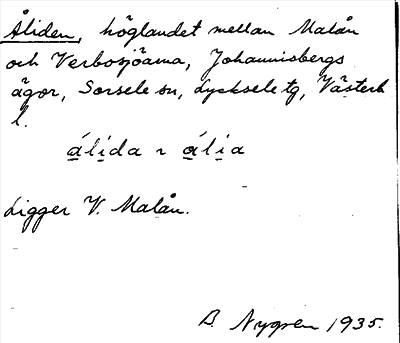 Åliden, höglandet mellan Malån
och Verbosjöarna, Johannisbergs
ägor, Sorsele sn, Lycksele tg, Västerb
l.
álida ~ ália
Ligger V. Malån.
B. Nygren 1935.